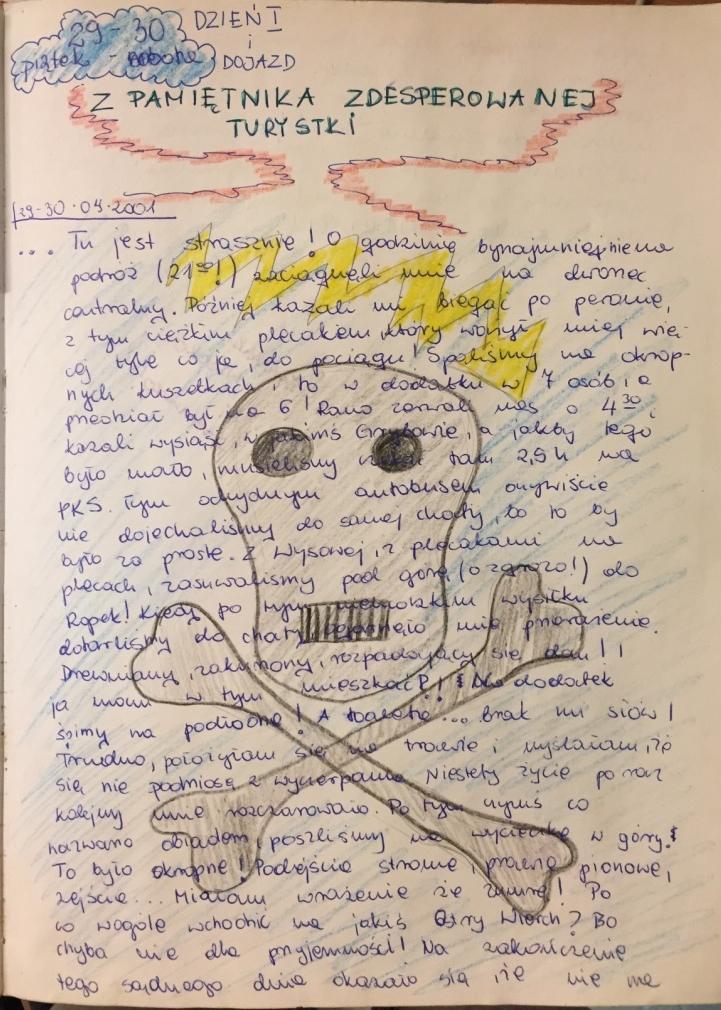 29-30 DZIEŃ I
piątek - sobota i DOJAZD
Z PAMIĘTNIKA ZDESPEROWANEJ
TURYSTKI
29-30.04.2001
... Tu jest strasznie! O godzinie bynajmniej nie na
podróż (21⁰⁰!) zaciągnęli mnie na dworzec
centralny. Później kazali mi biegać po peronie,
z tym ciężkim plecakiem, który ważył mniej wię-
cej tyle co ja, do pociągu! Spaliśmy na okrop-
nych kuszetkach, i to w dodatku w 7 osób, a
przedział był na 6! Rano zerwali nas o 4³⁰ i
kazali wysiąść, w jakimś Grybowie, a jakby tego
było mało, musieliśmy czekać tam 2,5 h na
PKS. Tym ohydnym autobusem oczywiście
nie dojechaliśmy do samej chaty, bo to by
było za proste. Z Wysowej, z plecakami na
plecach, zasuwaliśmy pod górę (o zgrozo!) do
Ropek! Kiedy po tym wysiłku
dotarliśmy do chaty, ogarnęło mnie przerażenie.
Drewniany, zakurzony, rozpadający się dom!!
ja mam w tym mieszkać?! Na dodatek
śpimy na podłodze! A toaleta... brak mi słów!
Trudno, położyłam się na trawie i myślałam, że
się nie podniosę z wyczerpania. Niestety życie po raz
kolejny mnie rozczarowało. Po tym czymś co
nazwano obiadem, poszliśmy na wycieczkę w góry!
To było okropne! Podejścia strome, prawie pionowe,
zejścia... Miałam wrażenie że umrę! Po
co wogóle wchodzić na jakiś Ostry Wierch? Bo
chyba nie dla przyjemności! Na zakończenie
tego sądnego dnia okazało się, że nie ma